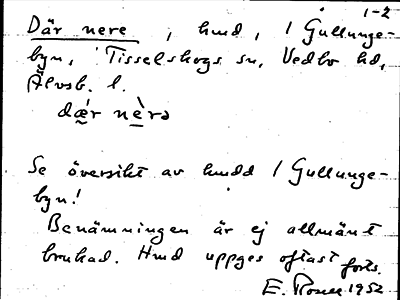 1-2
Där nere, hmd, 1 Gullunge-
byn, Tisselskogs sn, Vedbo hd,
Älvsb. l.
dæ̀r nèrə
Se översikt av hmdd 1 Gullunge-
byn!
Benämningen är ej allmänt
brukad. Hmd uppges oftast forts.
E. 1952